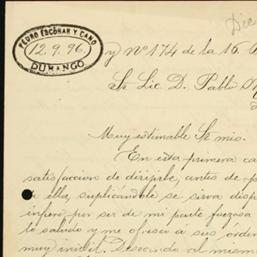 Dic
PEDRO ESCOBAR Y CANO
12.9.96.
DURANGO
y Nº 174 de la 16 A
Sr Lic. D. Pablo
Muy estimable Sr mio.
En esta primera ca
satisfaccion de dirijirle, antes de p
a ella, suplicándole se sirva disp
por ser de mi parte
lo saludo y me ofresco á sus órden
muy inutil. Deseando al mism